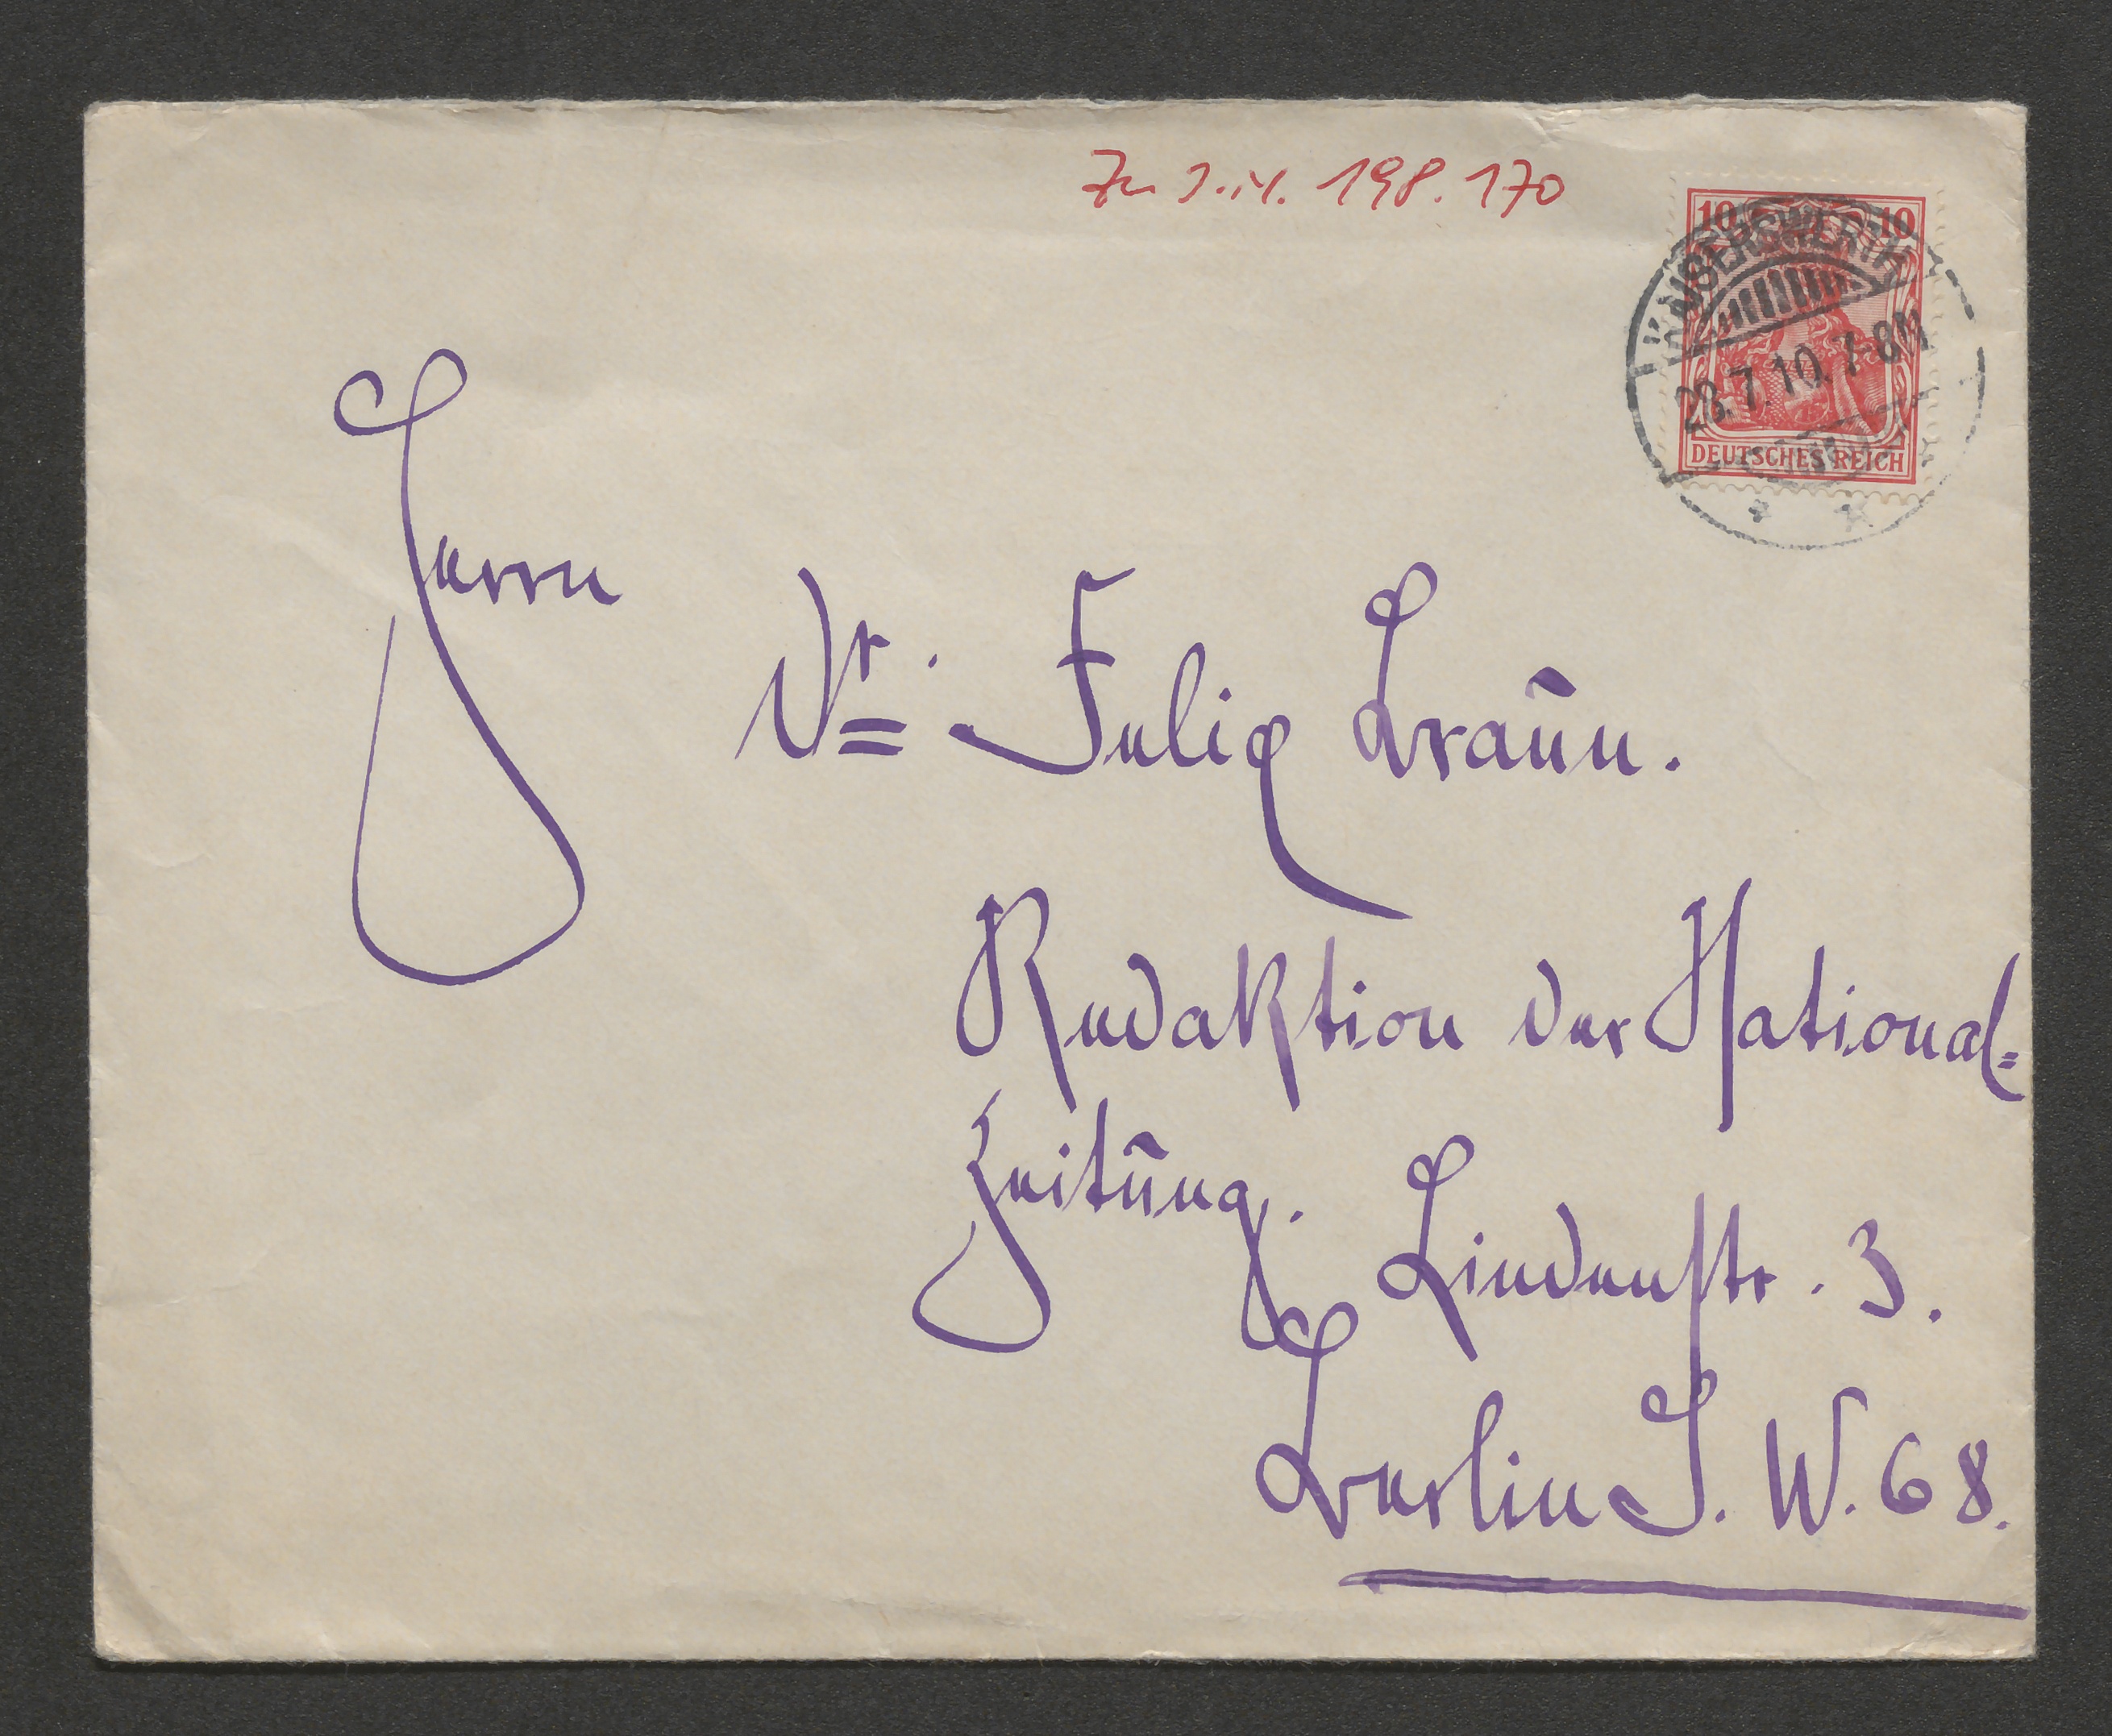 Zu I.N. 198.170
10 10
KAISERSWERTH
28.7.10.7-8N
DEUTSCHES REICH
Herrn
Dr. Felix Braun.
Redaktion der National=
Zeitung. Lindenstr. 3.
Berlin S. W. 68.